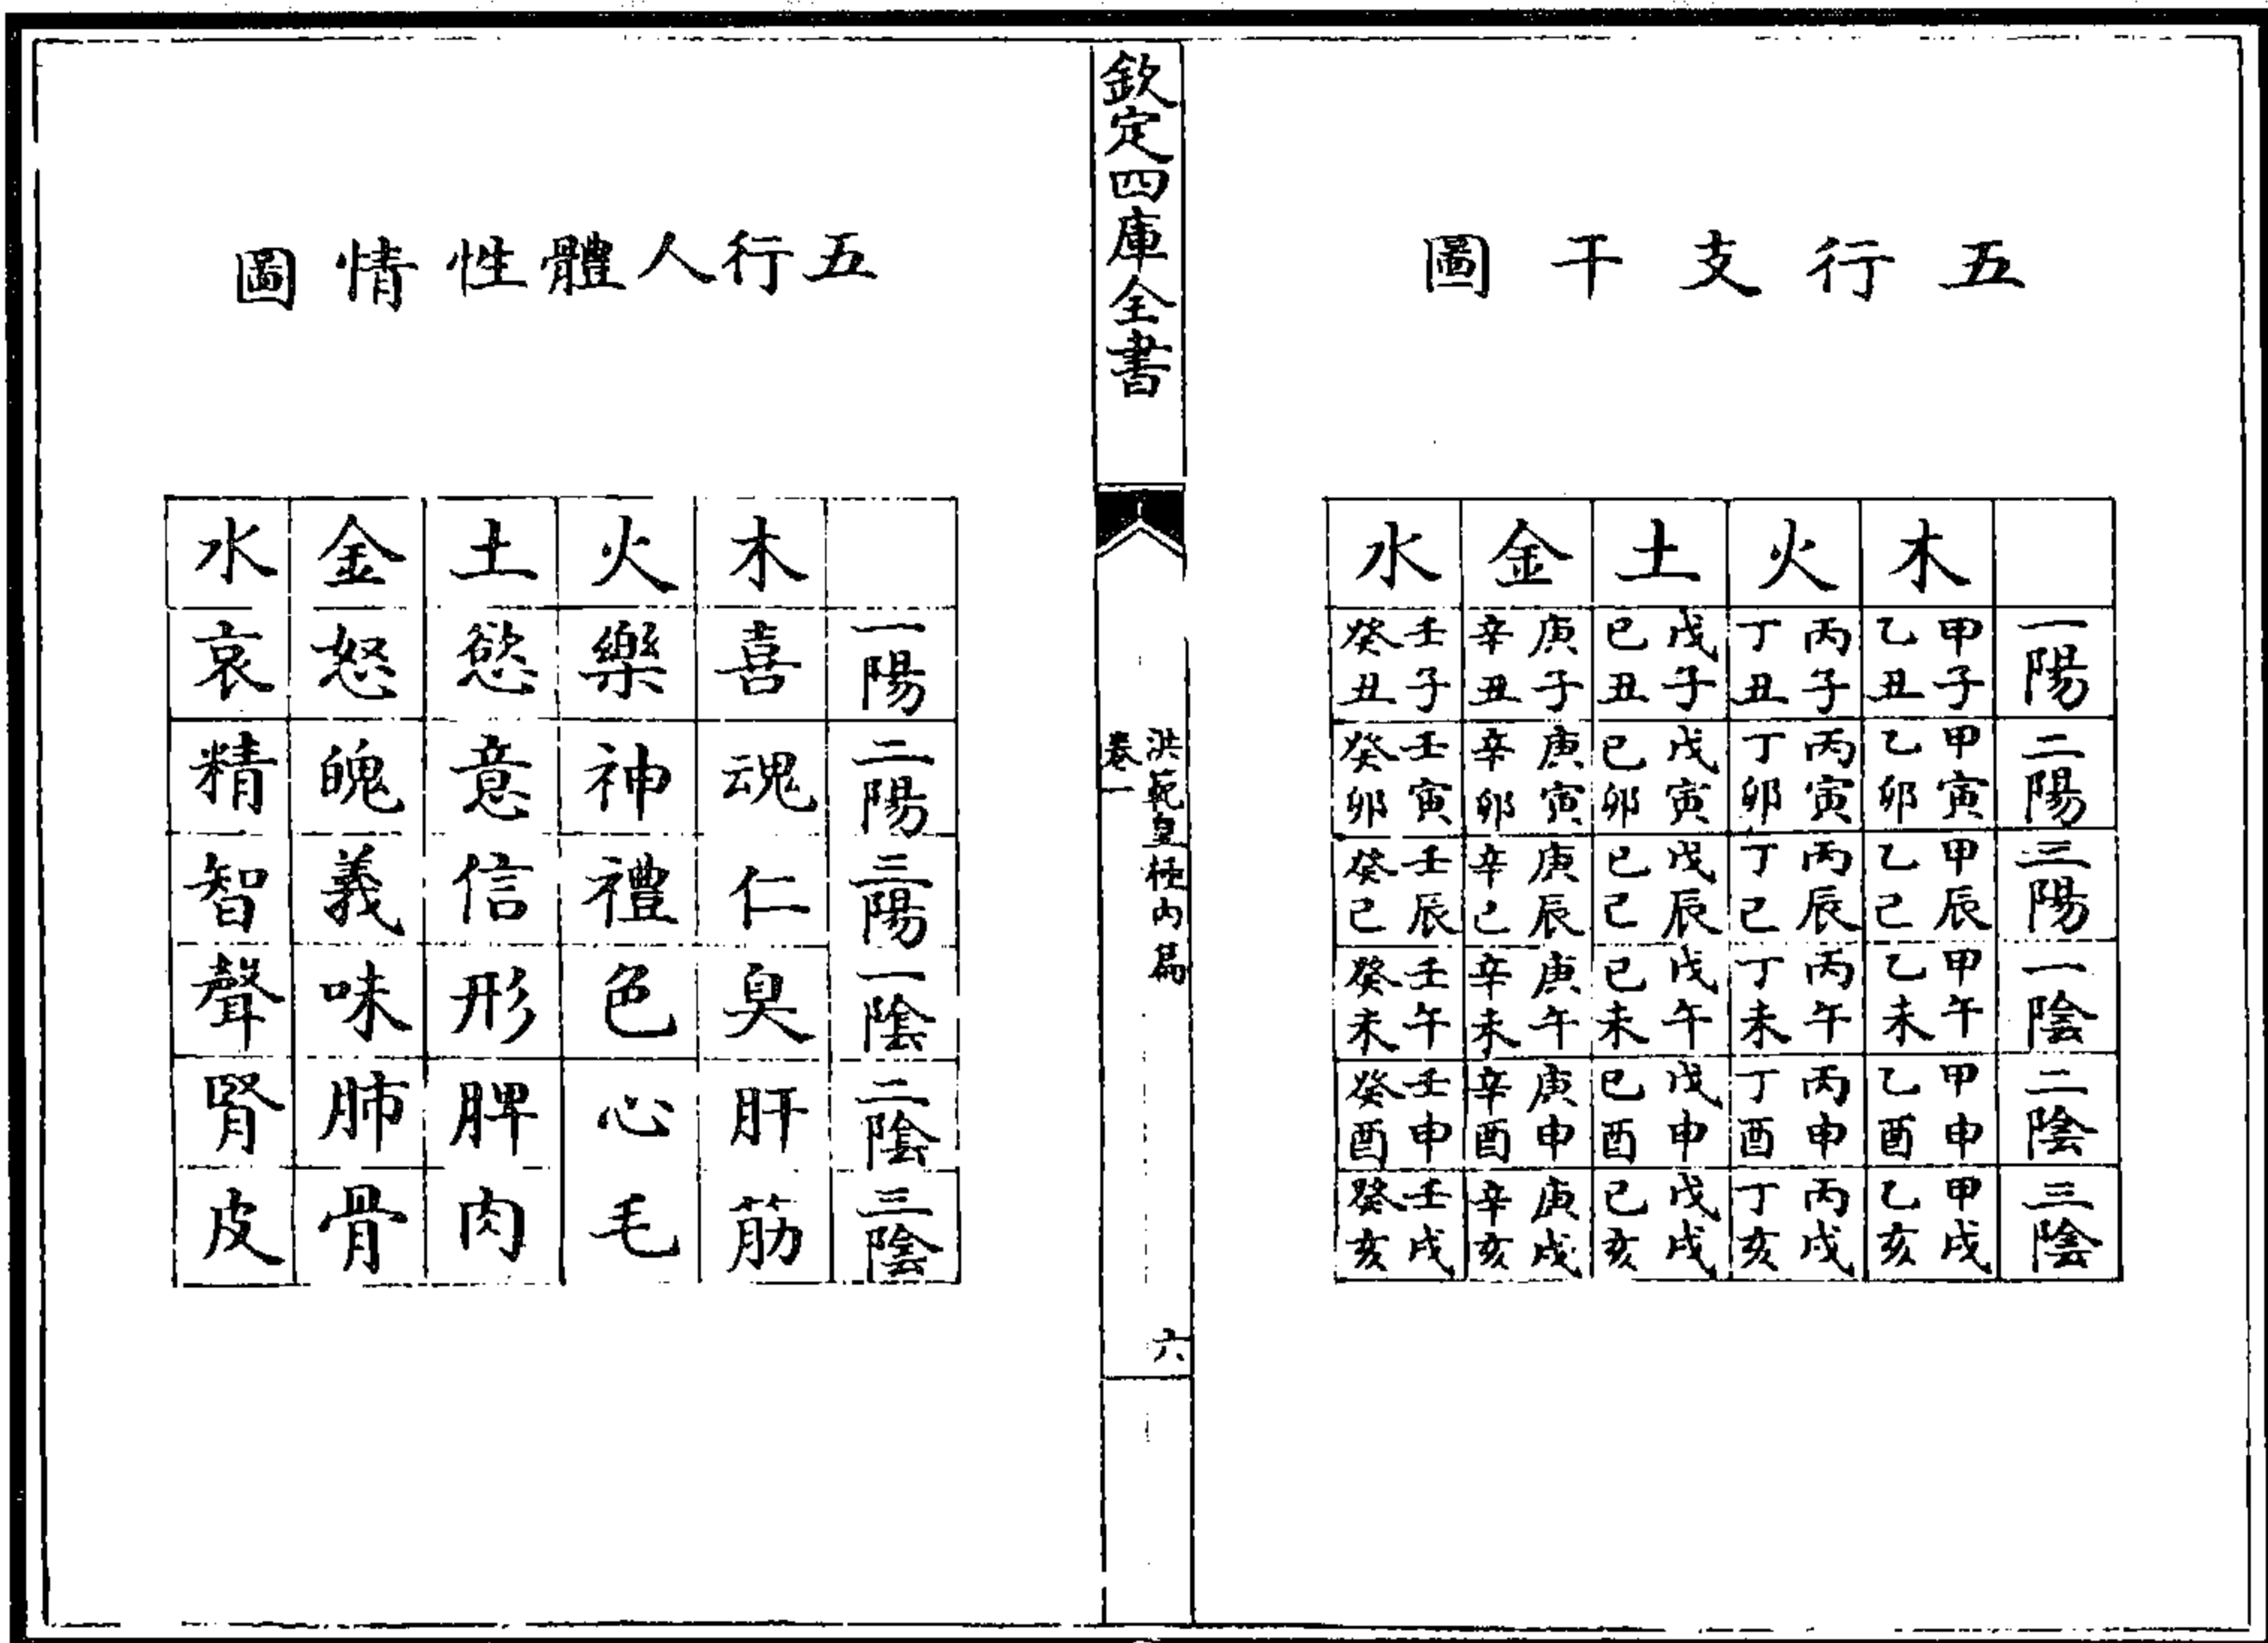 五行支干圖
木 火 土 金 水
一陽 甲子乙丑 丙子丁丑 戊子己丑 庚子辛丑 壬子癸丑
二陽 甲寅乙卯 丙寅丁卯 戊寅己卯 庚寅辛卯 壬寅癸卯
三陽 甲辰乙巳 丙辰丁巳 戊辰己巳 庚辰辛巳 壬辰癸巳
一陰 甲午乙未 丙午丁未 戊午己未 庚午辛未 壬午癸未
二陰 甲申乙酉 丙申丁酉 戊申己酉 庚申辛酉 壬申癸酉
三陰 甲戌乙亥 丙戌丁亥 戊戌己亥 庚戌辛亥 壬戌癸亥
欽定四庫全書
洪範皇極內篇
卷一
六
五行人體性情圖
木 火 土 金 水
一陽 喜 樂 慾 怒 哀
二陽 魂 神 意 魄 精
三陽 仁 禮 信 義 智
一陰 臭 色 形 味 聲
二陰 肝 心 脾 肺 腎
三陰 筋 毛 肉 骨 皮